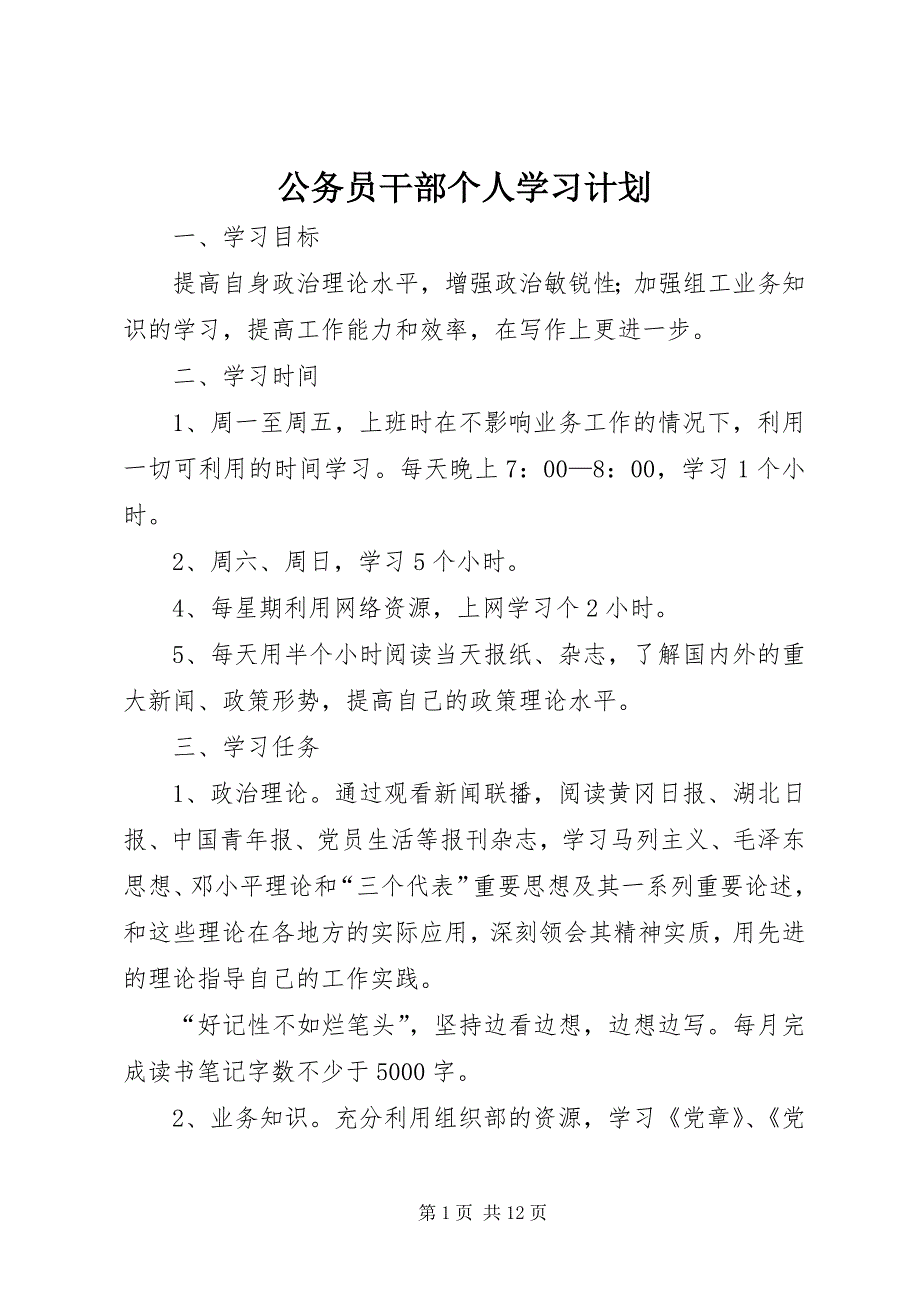 公务员干部个人学习计划
一、学习目标
提高自身政治理论水平，增强政治敏锐性；加强组工业务知
识的学习，提高工作能力和效率，在写作上更进一步。
二、学习时间
1、周一至周五，上班时在不影响业务工作的情况下，利用
一切可利用的时间学习。每天晚上 7：00—8：00，学习 1 个小
时。
2、周六、周日，学习 5 个小时。
4、每星期利用网络资源，上网学习个 2 小时。
5、每天用半个小时阅读当天报纸、杂志，了解国内外的重
大新闻、政策形势，提高自己的政策理论水平。
三、学习任务
1、政治理论。通过观看新闻联播，阅读黄冈日报、湖北日
报、中国青年报、党员生活等报刊杂志，学习马列主义、毛泽东
思想、邓小平理论和“三个代表”重要思想及其一系列重要论述，
和这些理论在各地方的实际应用，深刻领会其精神实质，用先进
的理论指导自己的工作实践。
“好记性不如烂笔头”，坚持边看边想，边想边写。每月完
成读书笔记字数不少于 5000 字。
2、业务知识。充分利用组织部的资源，学习《党章》、《党
第 1 页 共 12 页